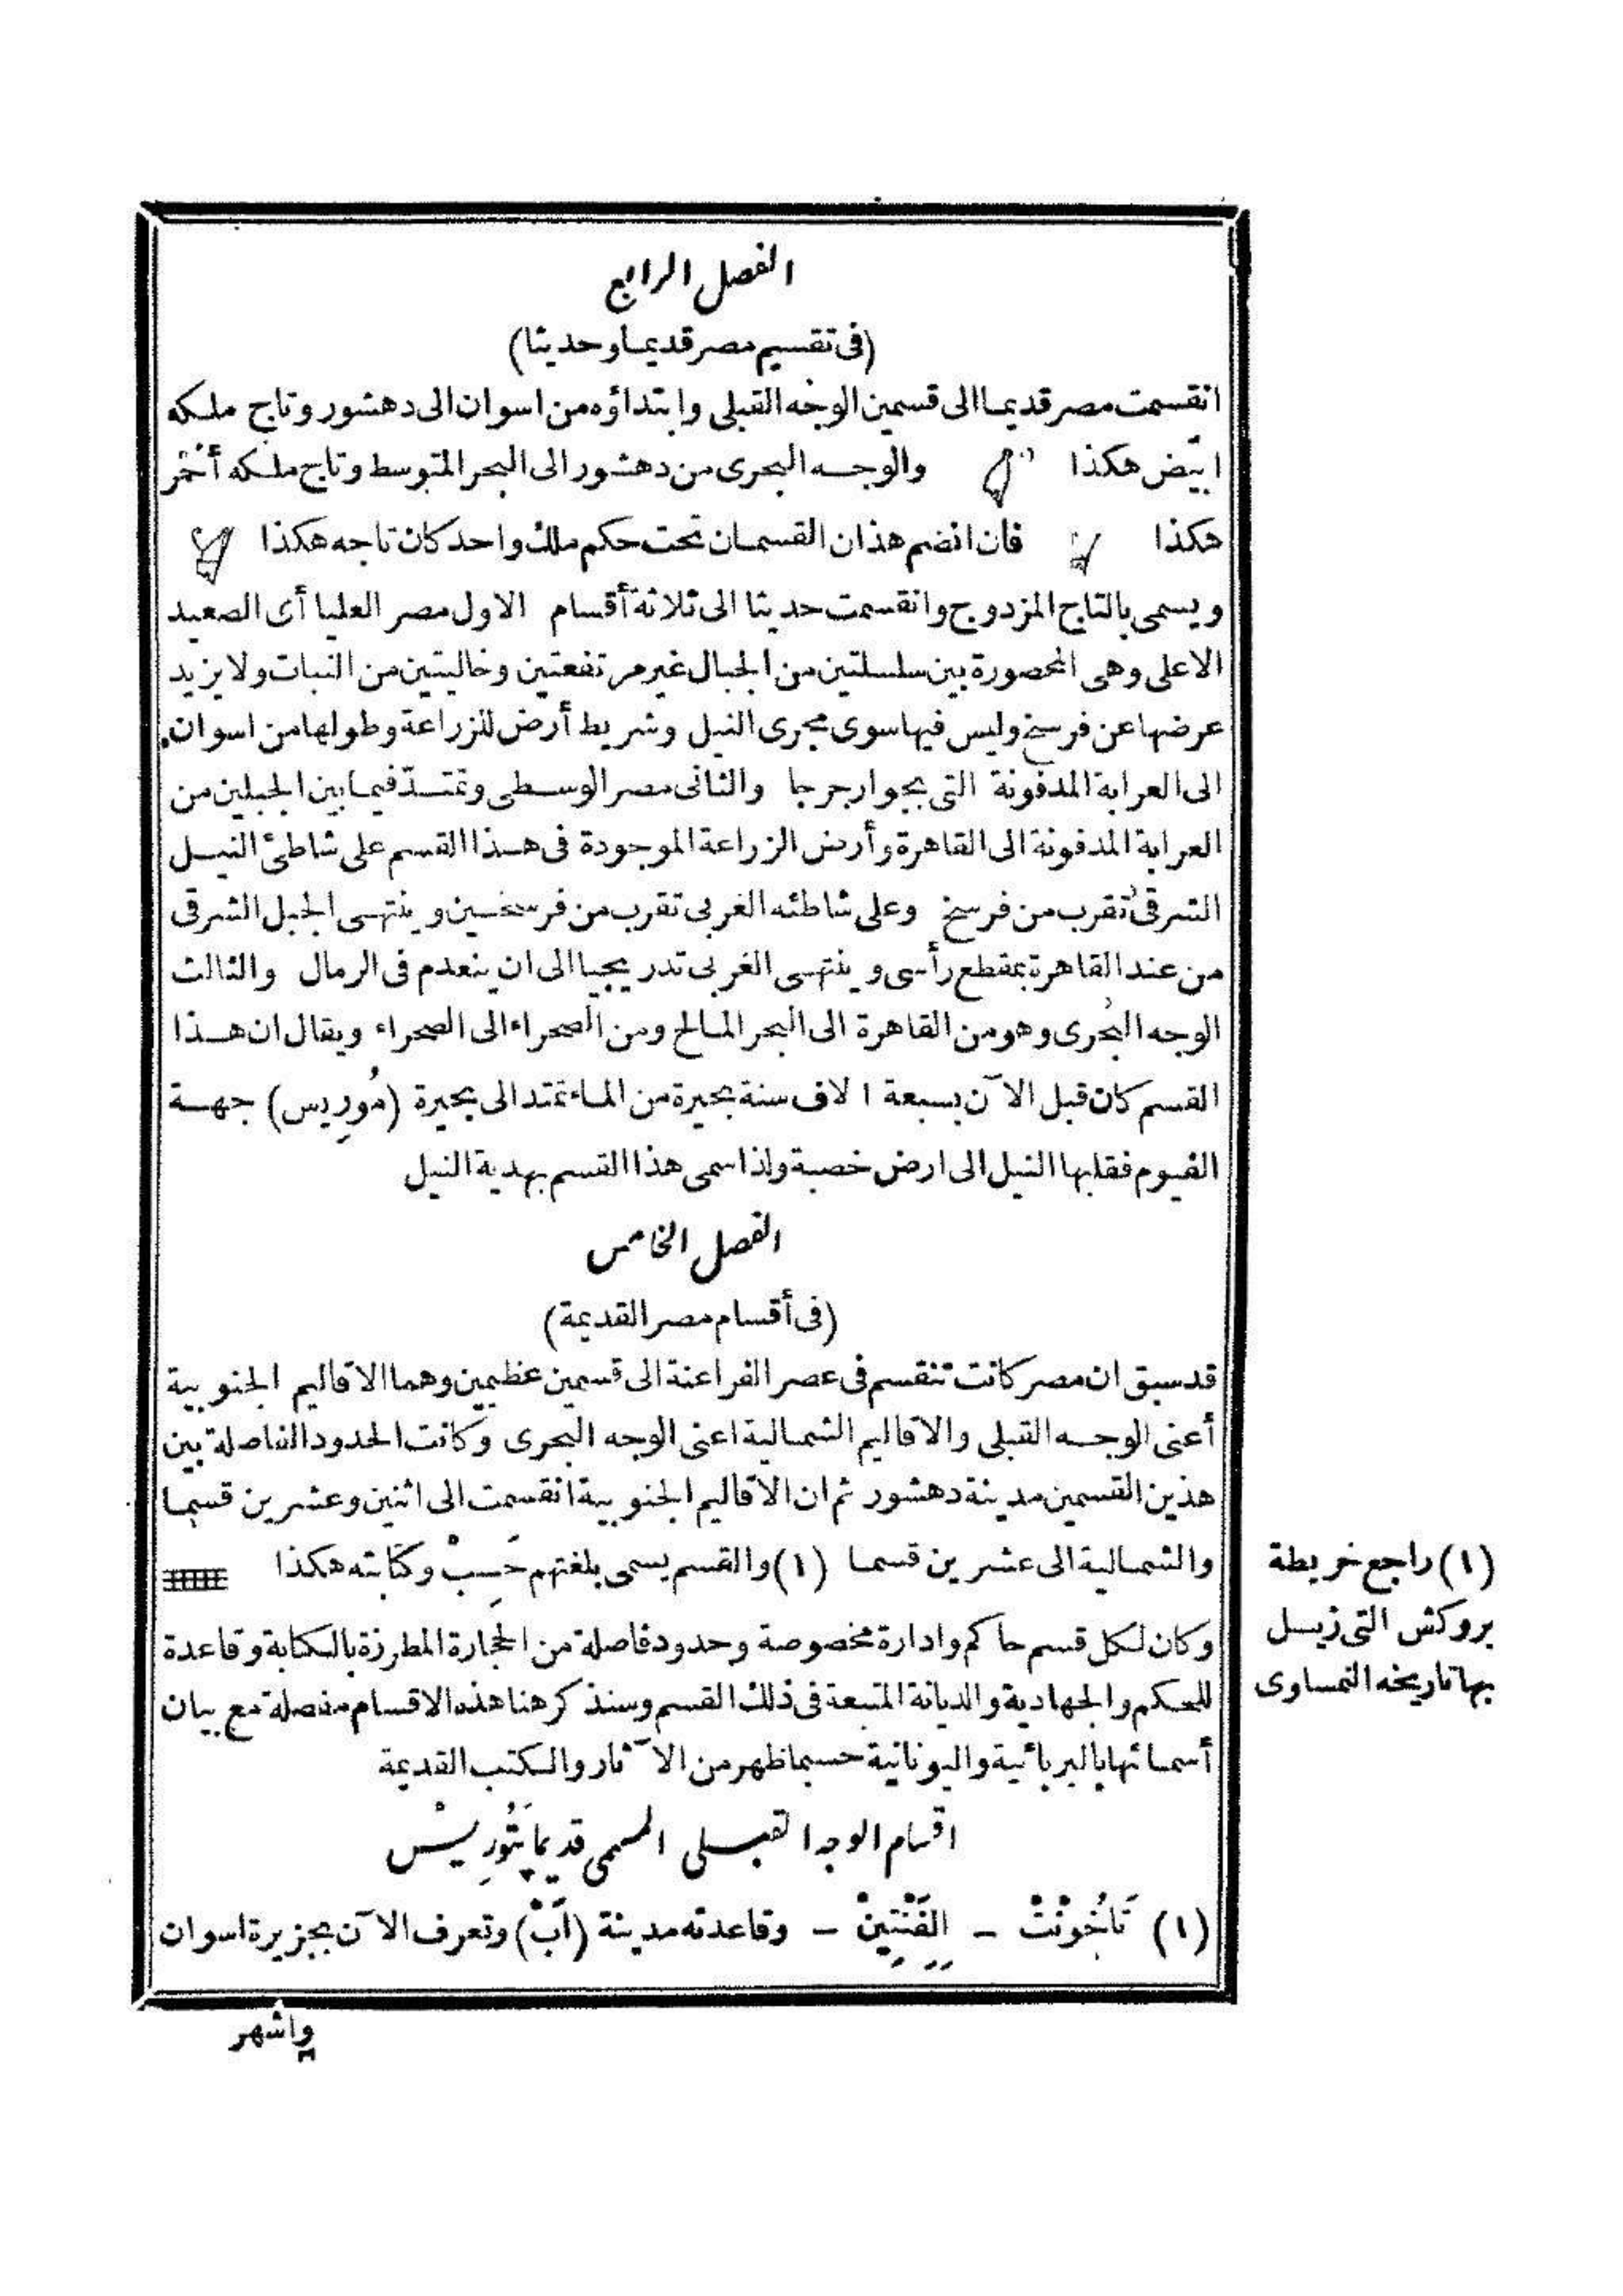 الفصل الرابع
(فى تقسيم مصر قديما وحديثا)
انقسمت مصر قديما الى قسمين الوجه القبلى وابتداؤه من اسوان الى دهشور وتاج ملكه
ابيض هكذا والوجه البحرى من دهشور الى البحر المتوسط وتاج ملكه أحمر
هكذا فان انضم هذان القسمان تحت حكم ملك واحد كان تاجه هكذا
ويسمى بالتاج المزدوج وانقسمت حديثا الى ثلاثة أقسام الاول مصر العليا أى الصعيد
الاعلى وهى المحصورة بين سلسلتين من الجبال غير مرتفعتين وخاليتين من النبات ولا يزيد
عرضها عن فرسخ وليس فيها سوى مجرى النيل وشريط أرض للزراعة وطولها من اسوان
الى العرابة المدفونة التى بجوار جرجا والثانى مصر الوسطى وتمتدّ فيما بين الجبلين من
العرابة المدفونة الى القاهرة وأرض الزراعة الموجودة فى هذا القسم على شاطئ النيل
الشرقى تقرب من فرسخ وعلى شاطئه الغربى تقرب من فرسخين وينتهى الجبل الشرقى
من عند القاهرة بمقطع رأسى وينتهى الغربى تدريجيا الى ان ينعدم فى الرمال والثالث
الوجه البحرى وهو من القاهرة الى البحر المالح ومن الصحراء الى الصحراء ويقال ان هذا
القسم كان قبل الآن بسبعة الاف سنة بحيرة من الماء تمتد الى بحيرة (مُورِيس) جهة
الفيوم فقلبها النيل الى ارض خصبة ولذا سمى هذا القسم بهدية النيل
الفصل الخامس
(فى أقسام مصر القديمة)
قد سبق ان مصر كانت تنقسم فى عصر الفراعنة الى قسمين عظيمين وهما الاقاليم الجنوبية
أعنى الوجه القبلى والاقاليم الشمالية اعنى الوجه البحرى وكانت الحدود الفاصلة بين
هذين القسمين مدينة دهشور ثم ان الاقاليم الجنوبية انقسمت الى اثنين وعشرين قسما
والشمالية الى عشرين قسما (١) والقسم يسمى بلغتهم حَسِبْ وكتابته هكذا
وكان لكل قسم حاكم وادارة مخصوصة وحدود فاصلة من الحجارة المطرزة بالكتابة وقاعدة
للحكم والجهادية والديانة المتبعة فى ذلك القسم وسنذكر هنا هذه الاقسام مفصلة مع بيان
أسمائها بالبربائية واليونانية حسبما ظهر من الآثار والكتب القديمة
اقسام الوجه القبلى المسمى قديما پَتُورِيسْ
(١) تَاخُونْتْ – اِلِفَنْتِينْ – وقاعدته مدينة (اَبْ) وتعرف الآن بجزيرة اسوان
واشهر
(١) راجع خريطة
بروكش التى زيل
بها تاريخه النمساوى